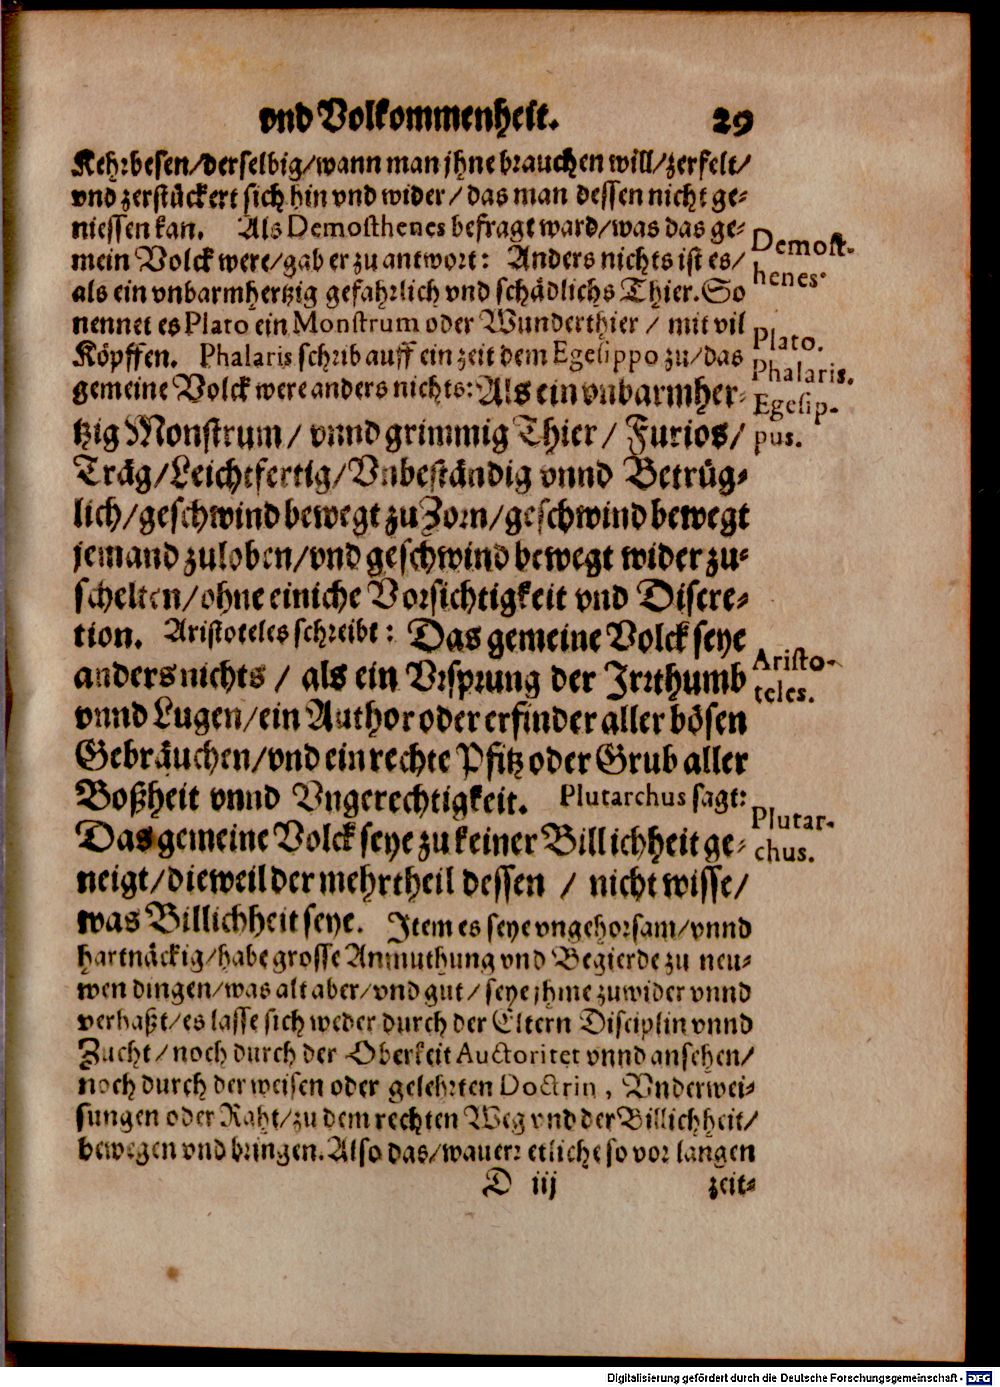 vnd Volkommenheit. 29
Kehrbesen/derselbig/wann man jhne brauchen will/zerfelt/
vnd zerstückert sich hin vnd wider/das man dessen nicht ge-
niessen kan. Als Demosthenes befragt ward/was das ge-
mein Volck were/gab er zu antwort: Anders nichts ist es/
als ein vnbarmhertzig gefahrlich vnd schädlichs Thier. So
nennet es Plato ein Monstrum oder Wunderthier/ mit vil
Köpffen. Phalaris schrib auff ein zeit dem Egesippo zu/das
gemeine Volck were anders nichts: Als ein vnbarmher-
tzig Monstrum/ vnnd grimmig Thier/ Furios/
Träg/Leichtfertig/Vnbeständig vnnd Betrüg-
lich/geschwind bewegt zu Zorn/geschwind bewegt
jemand zuloben/vnd geschwind bewegt wider zu-
schelten/ohne einiche Vorsichtigkeit vnd Discre-
tion. Aristoteles schreibt: Das gemeine Volck seye
anders nichts/ als ein Vrsprung der Irrthumb
vnnd Lugen/ein Author oder erfinder aller bösen
Gebräuchen/vnd ein rechte Pfitz oder Grub aller
Boßheit vnnd Vngerechtigkeit. Plutarchus sagt:
Das gemeine Volck seye zu keiner Billichheit ge-
neigt/dieweil der mehrtheil dessen/ nicht wisse/
was Billichheit seye. Item es seye vngehorsam/vnnd
hartnäckig/habe grosse Anmuthung vnd Begierde zu neu-
wen dingen/was alt aber/vnd gut/ seye jhme zuwider vnnd
verhaßt/es lasse sich weder durch der Eltern Disciplin vnnd
Zucht/noch durch der Oberkeit Auctoritet vnnd ansehen/
noch durch der weisen oder gelehrten Doctrin, Vnderwei-
sungen oder Raht/zu dem rechten Weg vnd der Billichheit/
bewegen vnd bringen. Also das/wauerr etliche so vor langen
D iij zeit-
Demost-
henes.
Plato.
Phalaris.
Egesip-
pus.
Aristo-
teles.
Plutar-
chus.
Digitalisierung gefördert durch die Deutsche Forschungsgemeinschaft - DFG